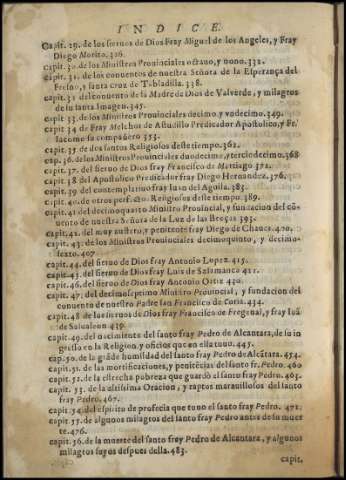 INDICE.
Capit. 29. de los sieruos de Dios Fray Miguel de los Angeles, y Fray
Diego Morito. 326.
capit. 30. de los Ministros Prouinciales octauo, y nono. 332.
capit. 31. de los conuentos de nuestra Señora de la Esperança del
Fresno, y santa cruz de Tabladilla. 338.
capit. 32 del conuento de la Madre de Dios de Valverde, y milagros
de su santa Imagen. 345.
capit 33. de los Ministros Prouinciales decimo, y vndecimo. 349.
capit 34 de Fray Melchor de Astudillo Predicador Apostolico, y Fr.
Iacome su compañero 353.
capit 35 de dos santos Religiosos deste tiempo. 362.
cap. 36. de los Ministros Prouinciales duodecimo, y terciodecimo. 368
capit. 37. del sieruo de Dios fray Francisco de 371.
capit 38 del Apostolico Predicador fray Diego Hernandez. 376.
capit 39 del contemplatiuo fray Iuan del Aguila. 383.
capit. 40. de otros Religiosos deste tiempo. 389.
capit. 41 del decimoquarto Ministro Prouincial, y fundacion del cõ-
uento de nuestra Señora de la Luz de las Broças 393.
capit 42. del muy austero, y penitente fray Diego de Chaues. 400.
capit. 43. de los Ministros Prouinciales decimoquinto, y decimo-
sexto. 407
capit. 44. del sieruo de Dios fray Antonio Lopez. 415.
capit. 45. del sieruo de Dios fray Luis de Salamanca 421.
capit. 46. del sieruo de Dios fray Antonio Ortiz 430.
capit. 47. del decimoseptimo Ministro Prouincial, y fundacion del
conuento de nuestro Padre san Francisco de Coria. 434.
capit. 48 de los sieruos de Dios fray Francisco de Fregenal, y fray Iuã
de Salualeon 439.
capit. 49. del nacimiento del santo fray Pedro de Alcantara, de su in
gresso en la Religion, y oficios que en ella tuuo. 445.
cap. 50. de la grãde humildad del santo fray Pedro de Alcãtara. 454.
capit. 51. de las mortificaciones, y penitẽcias del santo fr. Pedro. 460
capit. 52. de la estrecha pobreza que guardò el santo fray Pedro. 463.
capit. 53. de la altissima Oracion, y raptos marauillosos del santo
fray Pedro. 467.
capit. 54. del espiritu de profecia que tuuo el santo fray Pedro. 472.
capit. 55. de algunos milagros del santo fray Pedro antes de su muer
te. 476.
capit. 56. de la muerte del santo fray Pedro de Alcantara, y algunos
milagros suyos despues della. 483.
capit.